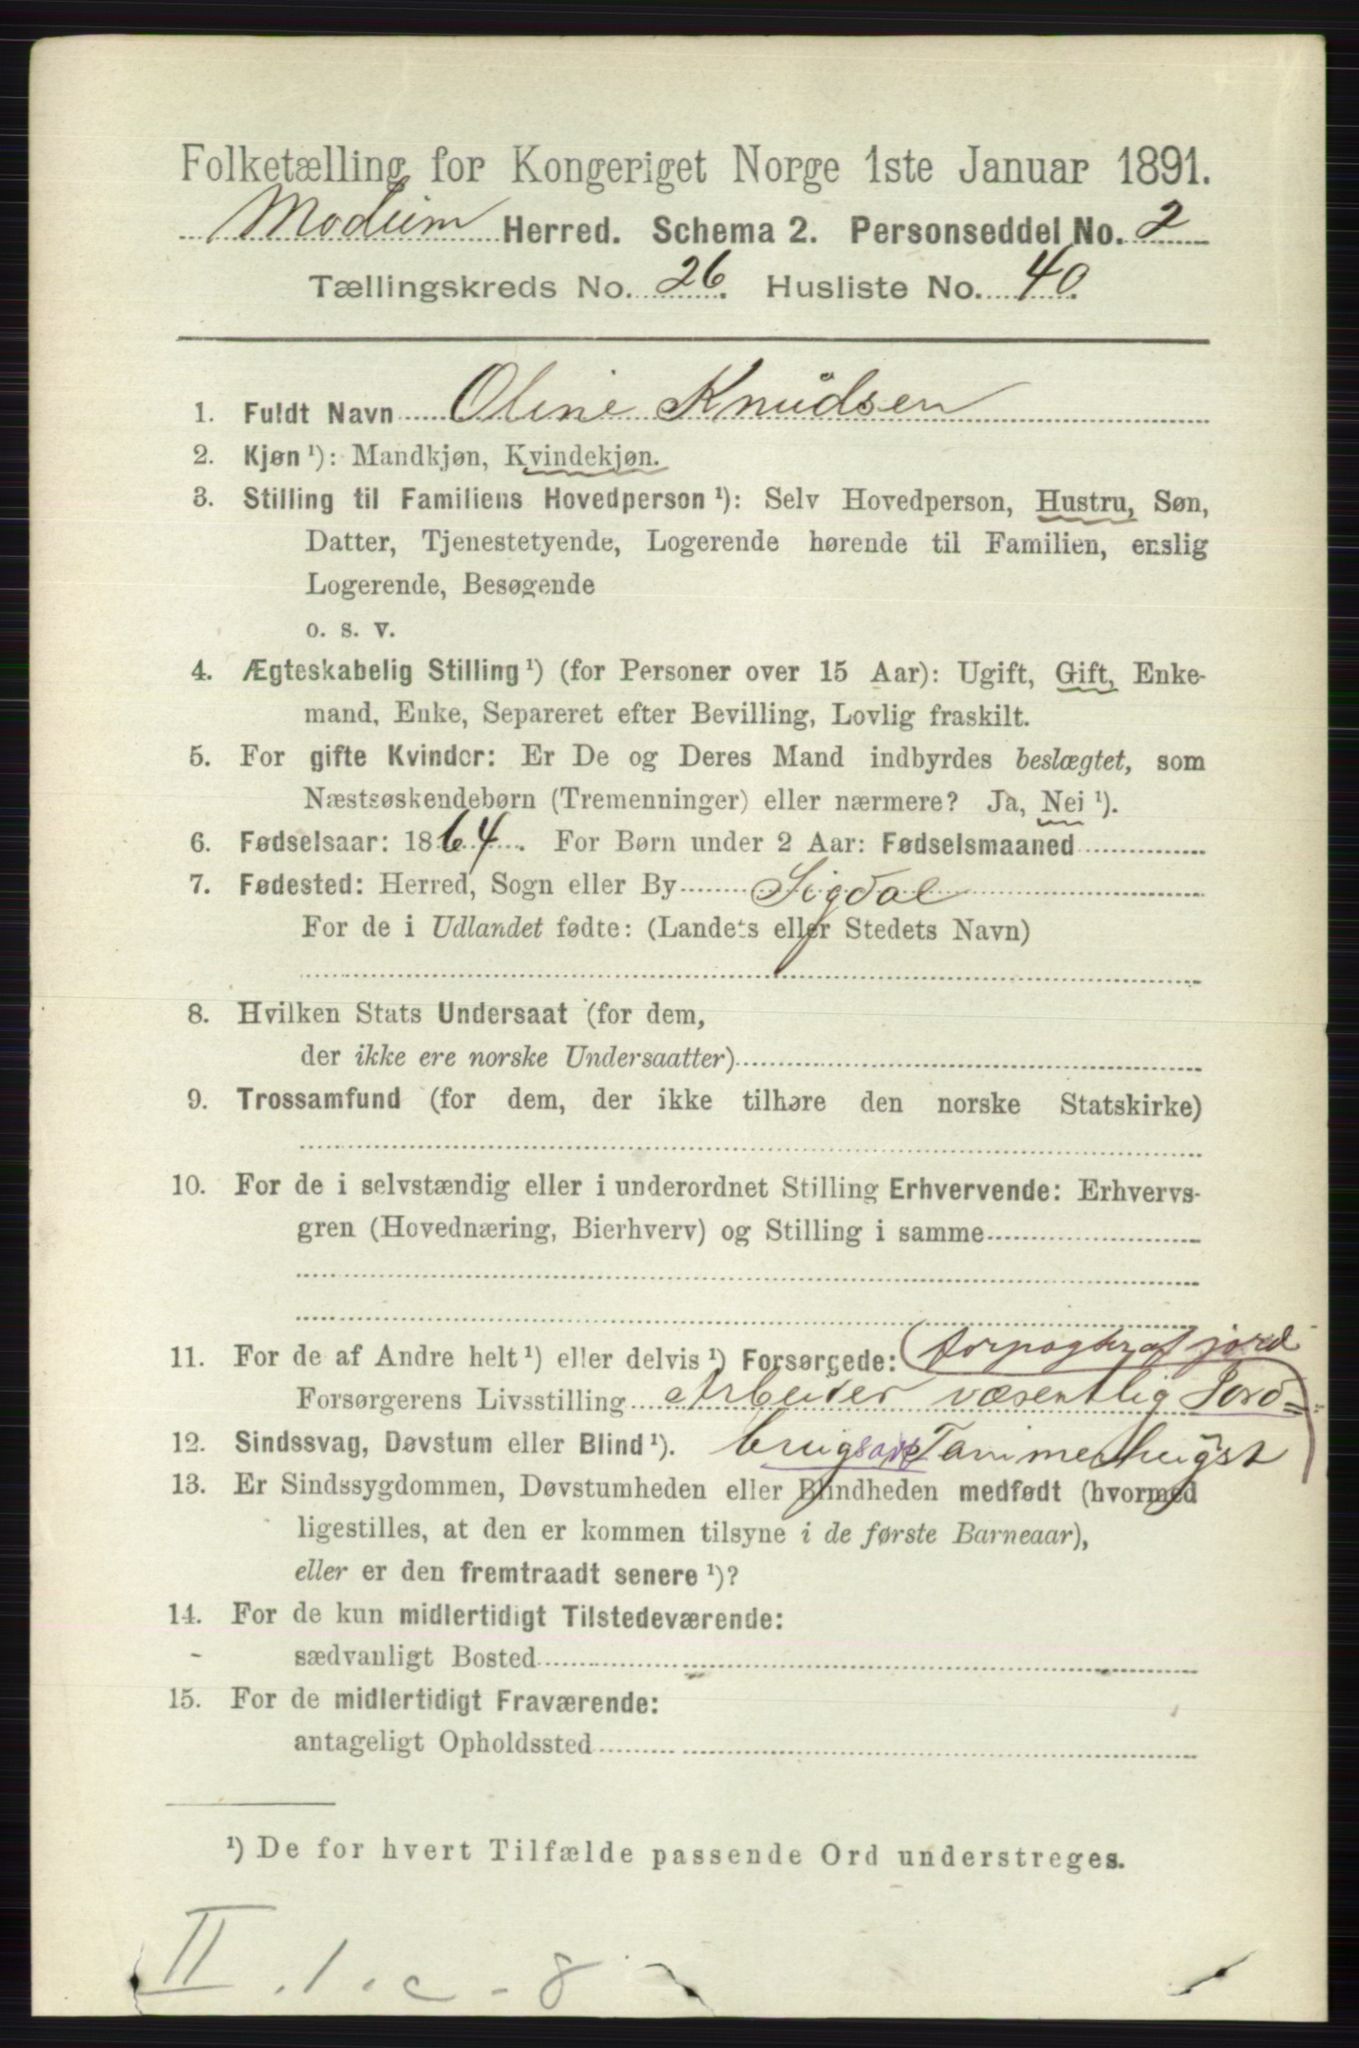 Folketælling for Kongeriget Norge 1ste Januar 1891.
Modum Herred. Schema 2. Personseddel No. 2
Tællingskreds No. 26. Husliste No. 40.
1. Fuldt Navn Oline Knudsen
2. Kjøn ¹): Mandkjøn, Kvindekjøn.
3. Stilling til Familiens Hovedperson ¹): Selv Hovedperson, Hustru, Søn,
Datter, Tjenestetyende, Logerende hørende til Familien, enslig
Logerende, Besøgende
o. s. v.
4. Ægteskabelig Stilling ¹) (for Personer over 15 Aar): Ugift, Gift, Enke-
mand, Enke, Separeret efter Bevilling, Lovlig fraskilt.
5. For gifte Kvinder: Er De og Deres Mand indbyrdes beslægtet, som
Næstsøskendebørn (Tremenninger) eller nærmere? Ja, Nei ¹).
6. Fødselsaar: 1864. For Børn under 2 Aar: Fødselsmaaned
7. Fødested: Herred, Sogn eller By Sigdal
For de i Udlandet fødte: (Landets eller Stedets Navn)
8. Hvilken Stats Undersaat (for dem,
der ikke ere norske Undersaatter)
9. Trossamfund (for dem, der ikke tilhøre den norske Statskirke)
10. For de i selvstændig eller i underordnet Stilling Erhvervende: Erhvervs-
gren (Hovednæring, Bierhverv) og Stilling i samme
11. For de af Andre helt ¹) eller delvis ¹) Forsørgede: forpagter af jord
Forsørgerens Livsstilling Arbeider væsentlig Jord=
12. Sindssvag, Døvstum eller Blind ¹). brugsarb Tømmerhugst
13. Er Sindssygdommen, Døvstumheden eller Blindheden medfødt (hvormed
ligestilles, at den er kommen tilsyne i de første Barneaar),
eller er den fremtraadt senere ¹)?
14. For de kun midlertidigt Tilstedeværende:
sædvanligt Bosted
15. For de midlertidigt Fraværende:
antageligt Opholdssted
¹) De for hvert Tilfælde passende Ord understreges.
II. 1. c. - 8